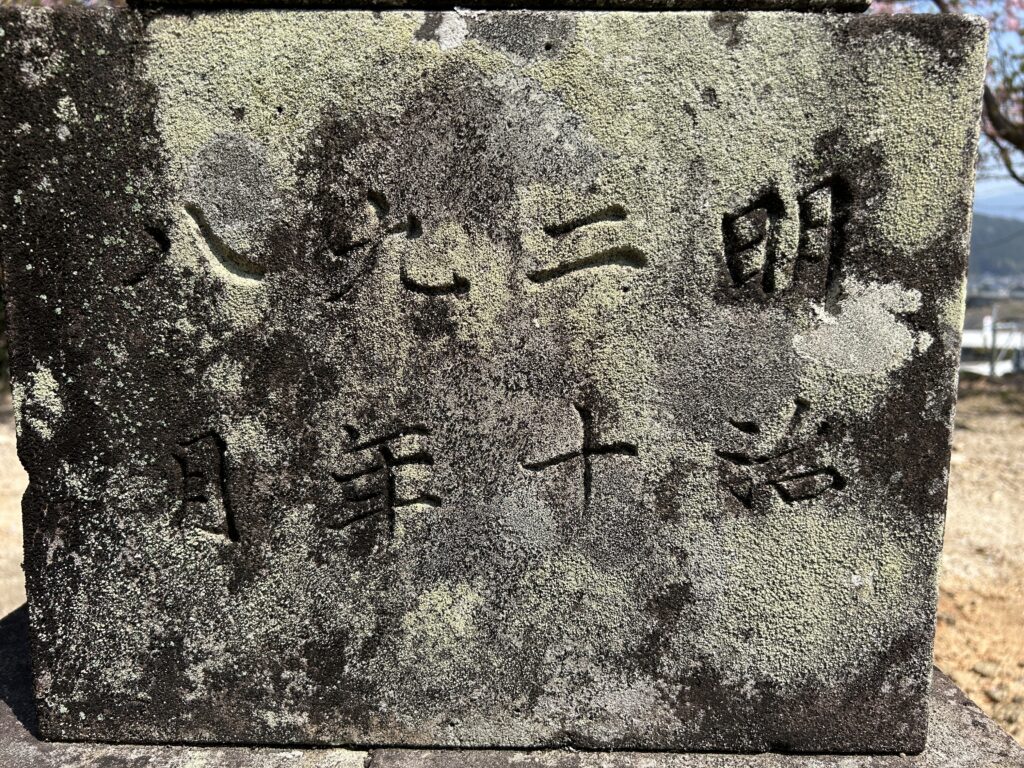 明治
二十
九年
八月